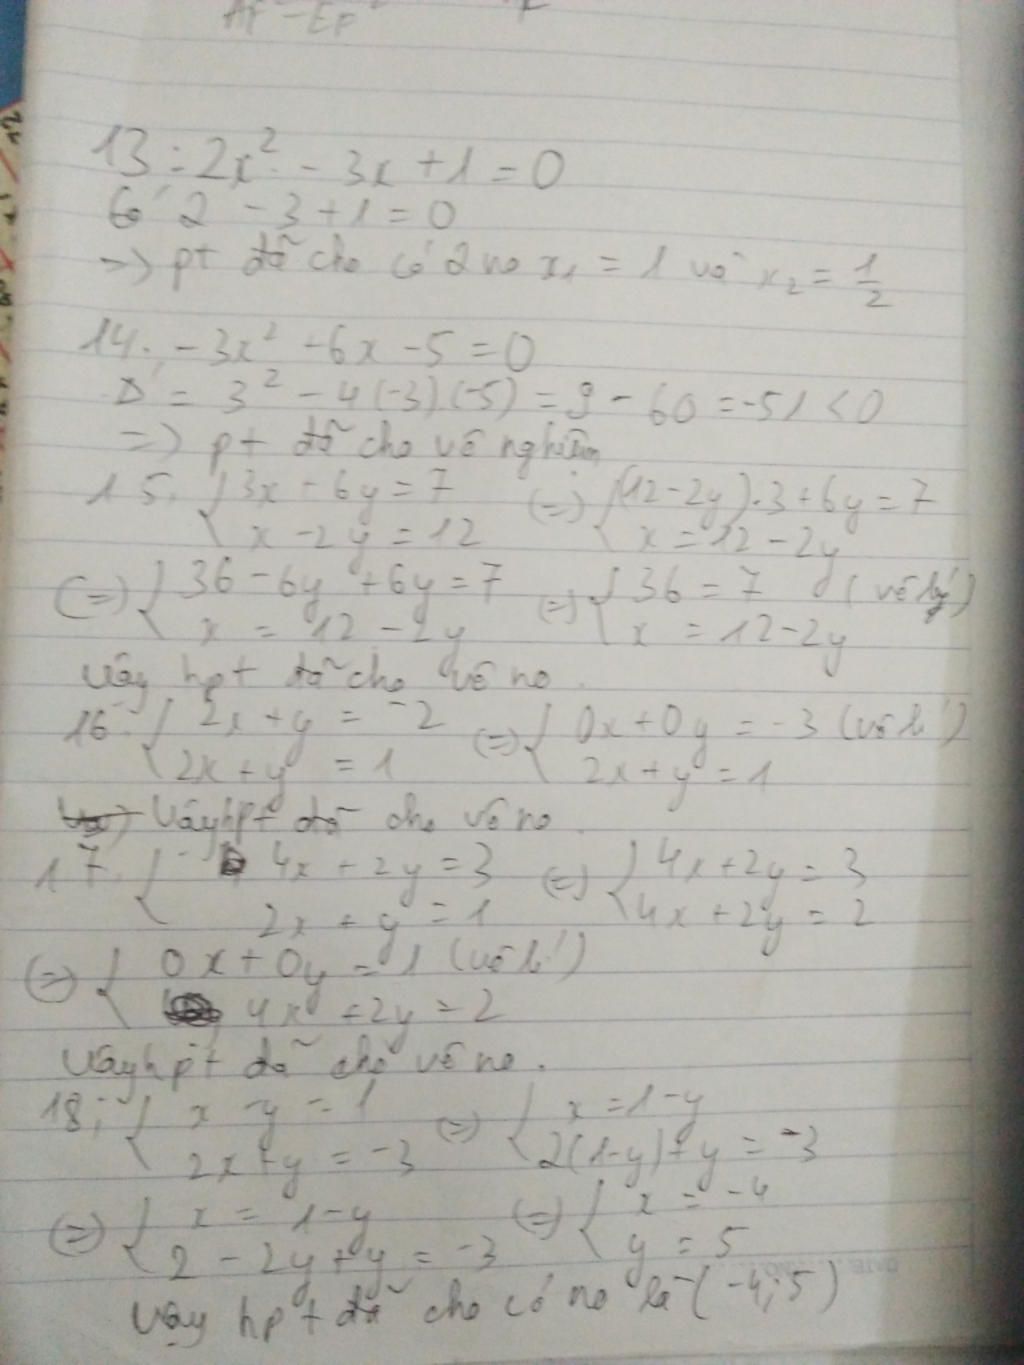 13: 2x² - 3x + 1 = 0
Có 2 - 3 + 1 = 0
=> pt đã cho có 2 no x₁ = 1 và x₂ = 1/2
14. -3x² - 6x - 5 = 0
Δ' = 3² - 4(-3).(-5) = 9 - 60 = -51 < 0
=> pt đã cho vô nghiệm
15. { 3x - 6y = 7 (=) { (12-2y).3 + 6y = 7
x - 2y = 12 x = 12 - 2y
(=) { 36 - 6y + 6y = 7 (=) { 36 = 7 (vô lý)
x = 12 - 2y x = 12 - 2y
Vậy hpt đã cho vô no.
16. { 2x + y = -2 (=) { 0x + 0y = -3 (vô lí)
2x + y = 1 2x + y = 1
Vậy hpt đã cho vô no.
17. { 4x + 2y = 3 (=) { 4x + 2y = 3
2x + y = 1 4x + 2y = 2
(=) { 0x + 0y = 1 (vô lí)
4x + 2y = 2
Vậy hpt đã cho vô no.
18; { x -y = 1 (=) { x = 1-y
2x + y = -3 2(1-y) + y = -3
(=) { x = 1-y (=) { x = -4
2 - 2y + y = -3 y = 5
Vậy hpt đã cho có no là (-4; 5)